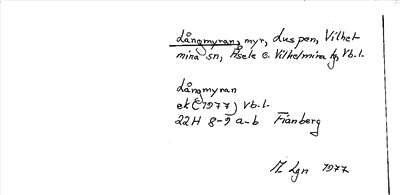 Långmyran, myr, Luspen, Vilhel
mina sn, Åsele o. Vilhelmina tg, Vb.l.
Långmyran
ek (1977) Vb.l.
22H 8-9 a-b Fianberg
M. Lgn 1977